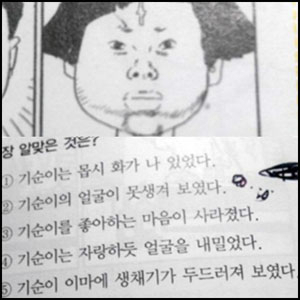 장 알맞은 것은?
① 기순이는 몹시 화가 나 있었다.
② 기순이의 얼굴이 못생겨 보였다.
③ 기순이를 좋아하는 마음이 사라졌다.
④ 기순이는 자랑하듯 얼굴을 내밀었다.
⑤ 기순이 이마에 생채기가 두드러져 보였다